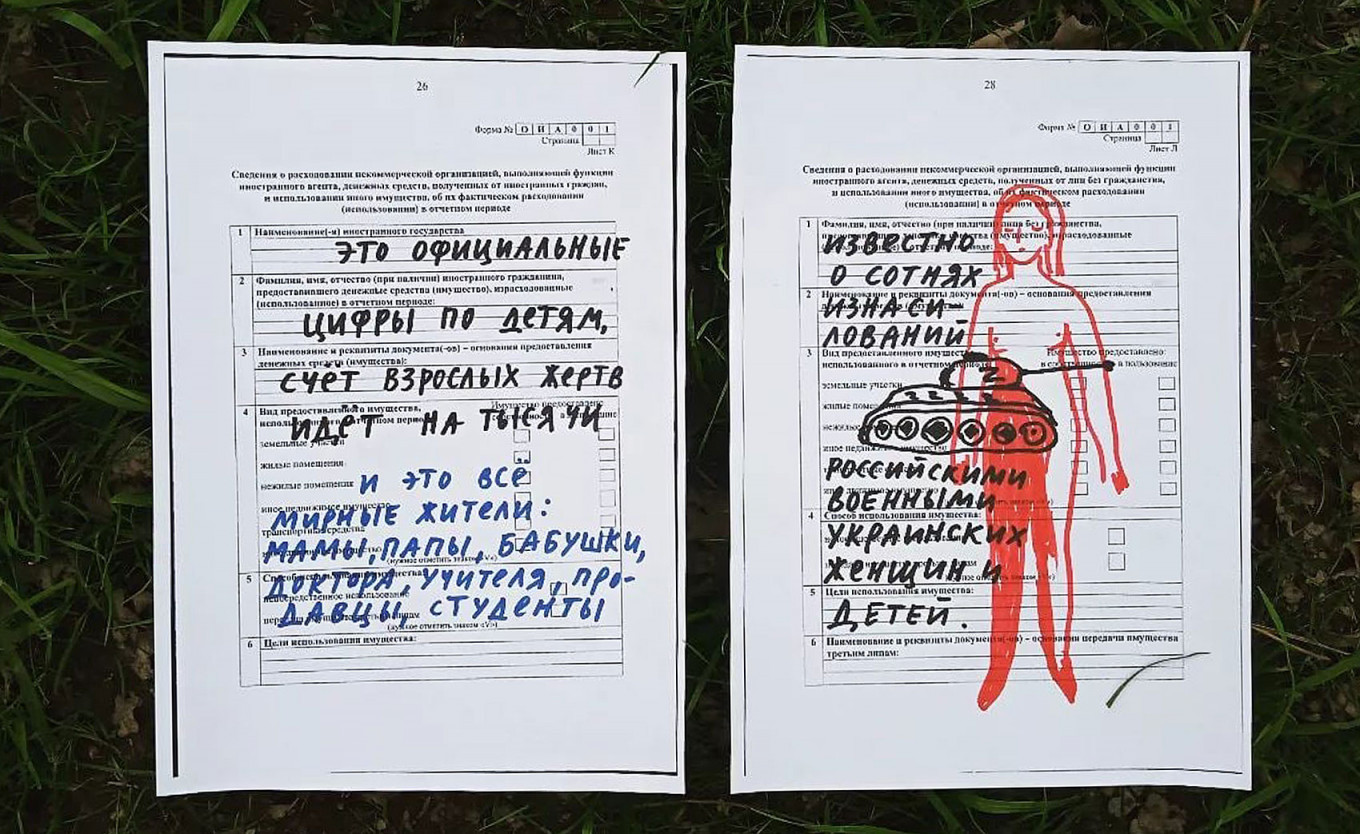 26
Форма № О И А 0 0 1
Страница
Лист К
Сведения о расходовании некоммерческой организацией, выполняющей функции
иностранного агента, денежных средств, полученных от иностранных граждан,
и использовании иного имущества, об их фактическом расходовании
(использовании) в отчетном периоде
1 Наименование(-я) иностранного государства
ЭТО ОФИЦИАЛЬНЫЕ
2 Фамилия, имя, отчество (при наличии) иностранного гражданина,
предоставившего денежные средства (имущество), израсходованные
(использованное) в отчетном периоде:
ЦИФРЫ ПО ДЕТЯМ,
3 Наименование и реквизиты документа(-ов) – основания предоставления
денежных средств (имущества):
СЧЁТ ВЗРОСЛЫХ ЖЕРТВ
4 Вид предоставленного имущества,
Имущество предоставлено
ИДЁТ НА ТЫСЯЧИ
земельные участки
жилые помещения
нежилые помещения
И ЭТО ВСЁ
иное недвижимое имущество
МИРНЫЕ ЖИТЕЛИ:
транспортные средства
МАМЫ, ПАПЫ, БАБУШКИ,
(нужное отметить знаком «V»)
5 Способ использования имущества
ДОКТОРА, УЧИТЕЛЯ, ПРО-
непосредственное использование
ДАВЦЫ, СТУДЕНТЫ
(нужное отметить знаком «V»)
6 Цели использования имущества:
28
Форма № О И А 0 0 1
Страница
Лист Л
Сведения о расходовании некоммерческой организацией, выполняющей функции
иностранного агента, денежных средств, полученных от лиц без гражданства,
и использовании иного имущества, об их фактическом расходовании
(использовании) в отчетном периоде
1 Фамилия, имя, отчество (при наличии) лица без гражданства,
ИЗВЕСТНО
О СОТНЯХ
2 Наименование и реквизиты документа(-ов) – основания предоставления
ИЗНАСИ-
ЛОВАНИЙ
3 Вид предоставленного имущества
Имущество предоставлено:
использованного в отчетном периоде
в пользование
Z
земельные участки
жилые помещения
Z Z Z Z
РОССИЙСКИМИ
ВОЕННЫМИ
4 Способ использования имущества:
УКРАИНСКИХ
ЖЕНЩИН И
5 Цели использования имущества:
ДЕТЕЙ.
6 Наименование и реквизиты документа(-ов) – основания передачи имущества
третьим лицам: